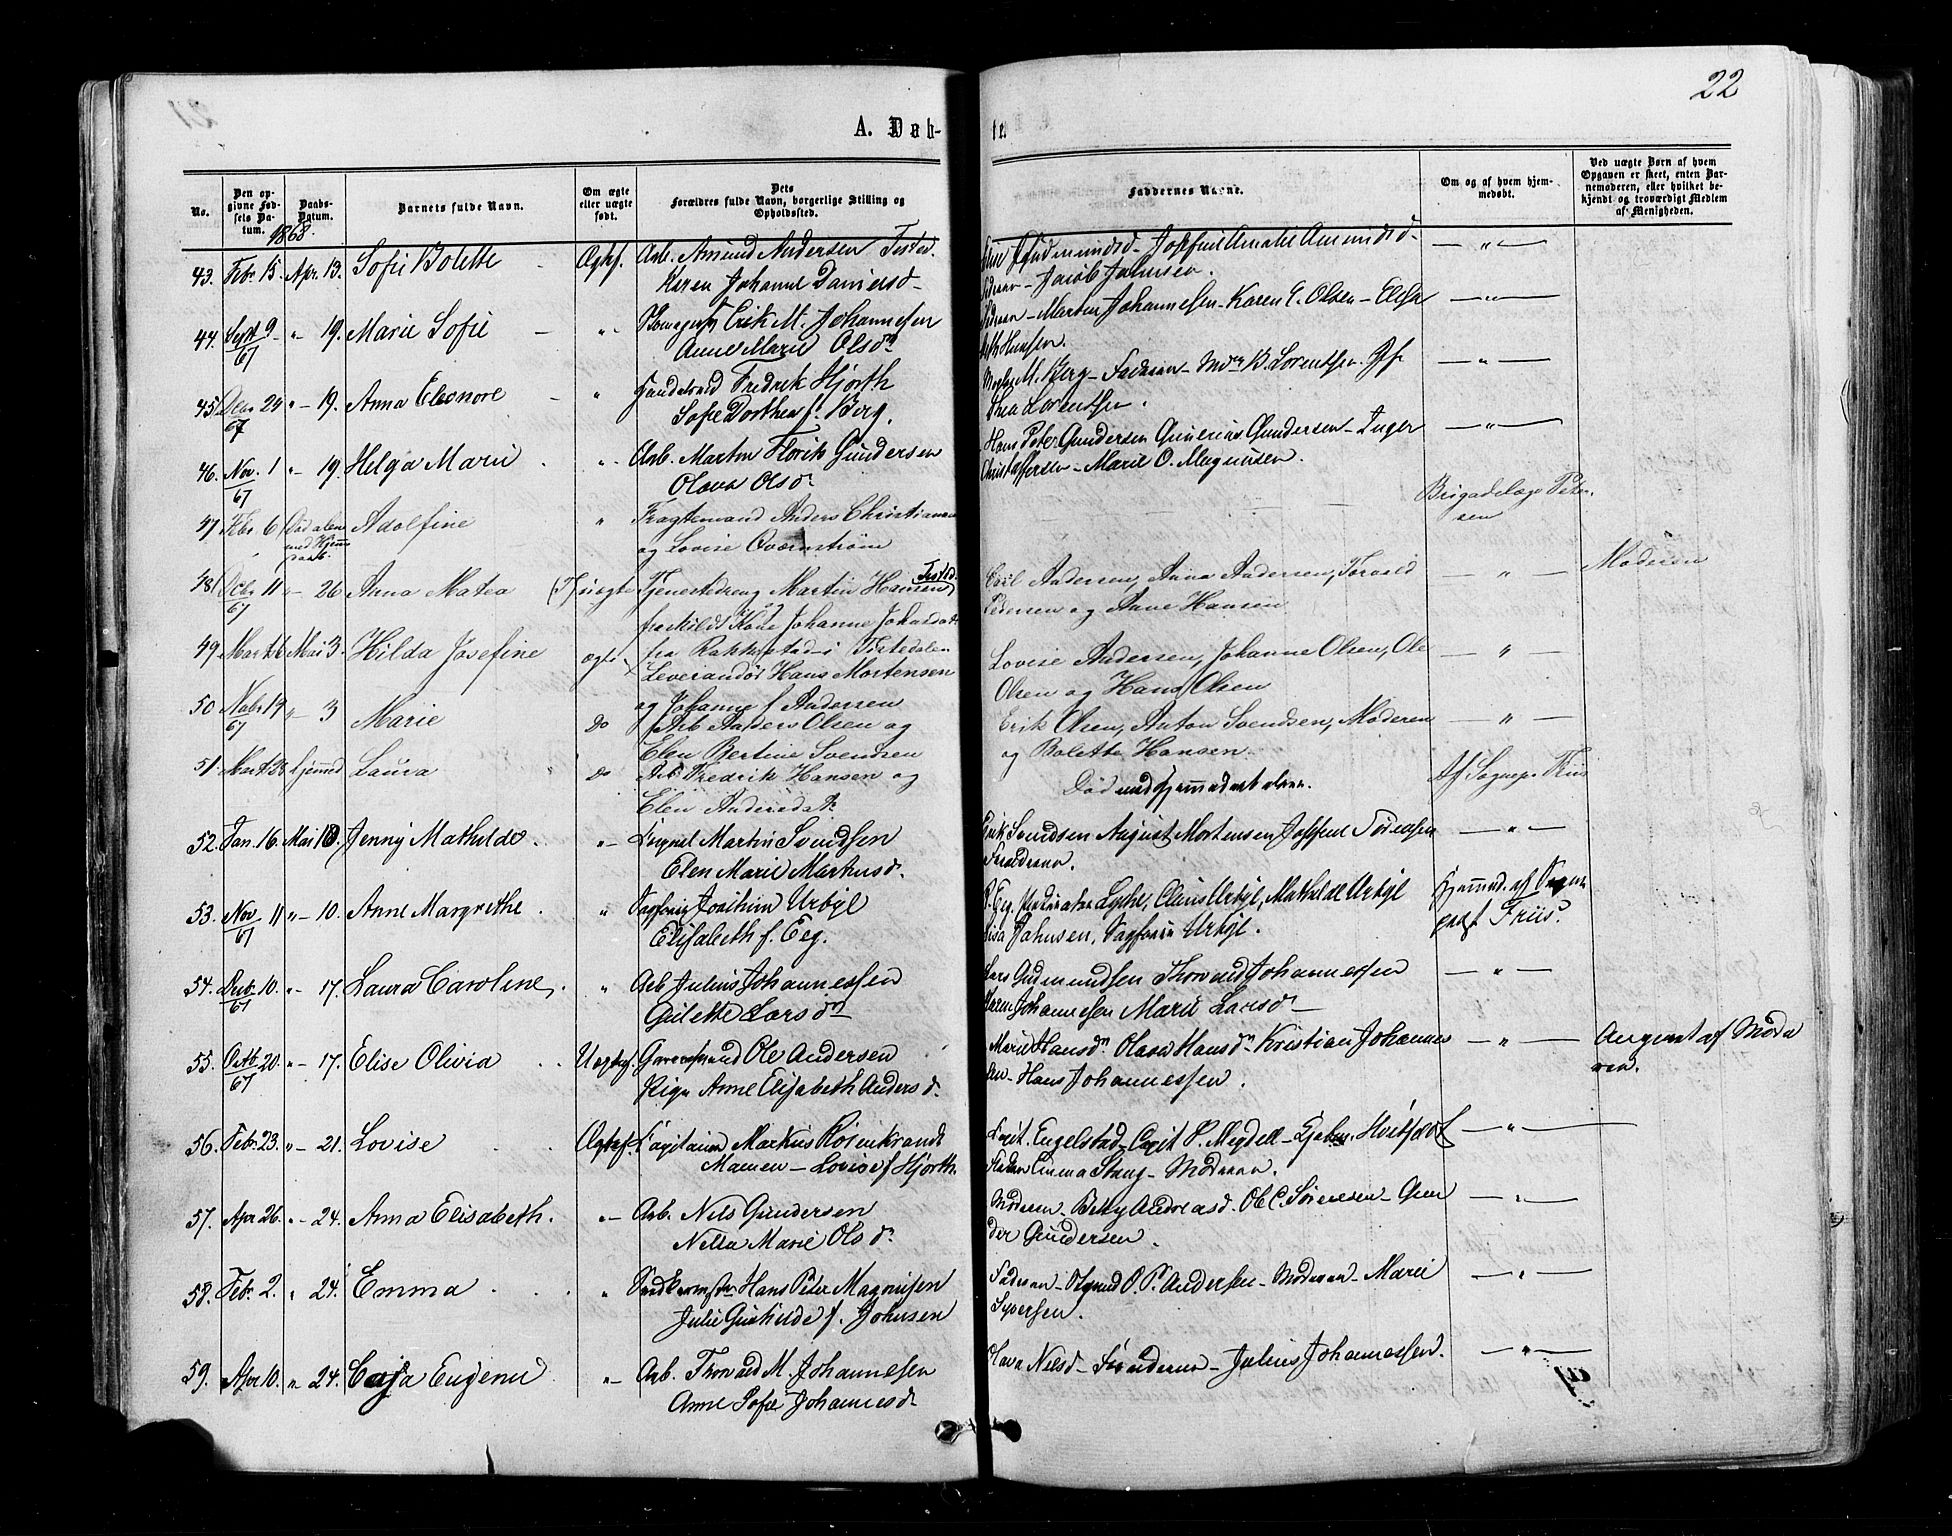 22
A. Døb-
te.
No.
Den opgivne Fødsels Datum.
Daabs-Datum.
Barnets fulde Navn.
Om ægte eller uægte født.
Dets Forældres fulde Navn, borgerlige Stilling og Opholdssted.
Faddernes Navne.
Om og af hvem hjemmedøbt.
Ved uægte Børn af hvem Opgaven er skeet, enten Barnemoderen, eller hvilket bekjendt og troværdigt Medlem af Menigheden.
1868.
43. Febr. 15. Apr. 13. Sofie Bolette Ægtef. Arb. Amund Andersen Tisted.
Karen Johanne Daniersd -
Gudmundsd. Josefine Amalie Amundsd -
Faderen - Jacob Johnsen.
44. Sept 9/67 " - 19. Marie Sofie " Erik M. Johannesen
Anne Marie Olsdr
Faderen - Martin Johannesen - Karen E. Olsen - Elisa
beth Hansen.
45. Decr 24/67 " - 19. Anna Eleonore " Handelsmd Fredrik Hjorth
Sofie Dorthea f. Berg.
M. Berg - Faderen - B. Lorentsen
Thea Lorentsen.
46. Nov. 1/67 " - 19. Helga Marie " Arb. Martin Gundersen
Olava Olsd.
Hans Peter Gundersen Gundersen - Inger
Christoffersen - Marie O. Magnusen.
47 Febr 6 Død alene med Hjemmedaab. Adolfine " Fragtemand Anders Christiansen
og Lovise Qværnstrøm
Brigadelæge Peter-
sen
48 Octbr 11/67 " 26 Anna Matea uægte Tjenestedreng Martin Hansen Tisted.
fraskildt Kone Johanne Johnsdat.
fra Rakkestad i Tistedalen
Carl Andersen, Anna Andersen, Torvald
Pedersen og Anne Hansen
Moderen
49 Marts 6 Mai 3. Hilda Josefine ægte Leverandør Hans Mortensen
og Johanne f Andersen
Lovise Andersen, Johanne Olsen, Ole
Olsen og Hans Olsen
50 Novbr 19/67 " 3 Marie Do Arb Anders Olsen og
Elen Bertine Svendsen
Erik Olsen, Anton Svendsen, Moderen
og Bolette Hansen
51 Marts 23 hjemmed Laura Do Arb Fredrik Hansen og
Elen Andersdat.
Død med Hjemmedaab alene.
Af Sognep. Friis
52. Jan. 16. Mai 10. Jenny Mathilde. " Martin Svendsen
Elen Marie Markusd.
Erik Svendsen August Mortensen Josefine Sørensen
Forældrene.
53. Nov 11/67 " - 10. Anne Margrethe. " Sagfører Joachim Urbye
Elisabeth f. Eeg.
Lythe, Claus Urbye, Mathilde Urbye
Lisa Johnsen, Sagfører Urbye.
Hjemmed. af Sogne-
præst Friis.
54. Decbr. 10./67 " - 17. Laura Caroline. " Arb Julius Johannessen
Gulette Larsdr
Lars Gudmundsen Thorvald Johannessen
Karen Johannesen Marie Larsd -
55. Octb. 20./67 " - 17. Elise Olivia Uægtef. Ole Andersen
Pige Anne Elisabeth Andersd.
Marie Hansdr Olava Hansdr Kristian Johannes
en - Hans Johannessen.
Angivet af Mode
ren.
56. Febr. 23. " - 21. Lovise Ægtef. Captain Markus Rosenkrands
Mamen - Lovise f Hjorth
Engelstad - P. Mejdell - Hvitfeldt
Emma Stang - Moderen.
57. Apr 26. " - 24. Anna Elisabeth. " Arb. Nils Gundersen
Nella Marie Olsd.
Moderen - Betzy Andreasd. O. C. Sørensen - Gun
der Gundersen.
58. Febr. 2. " 24. Emma " Hans Peter Magnusen
Julie Gunhilde f. Johnsen
Faderen - O. P. Andersen - Moderen - Marie
Syversen.
59. Apr 10. " 24. Caja Eugenie " Arb. Thorvald M. Johannesen
Anne Sofie Johannesd.
Olava Nilsd - Forældrene - Julius Johannessen.